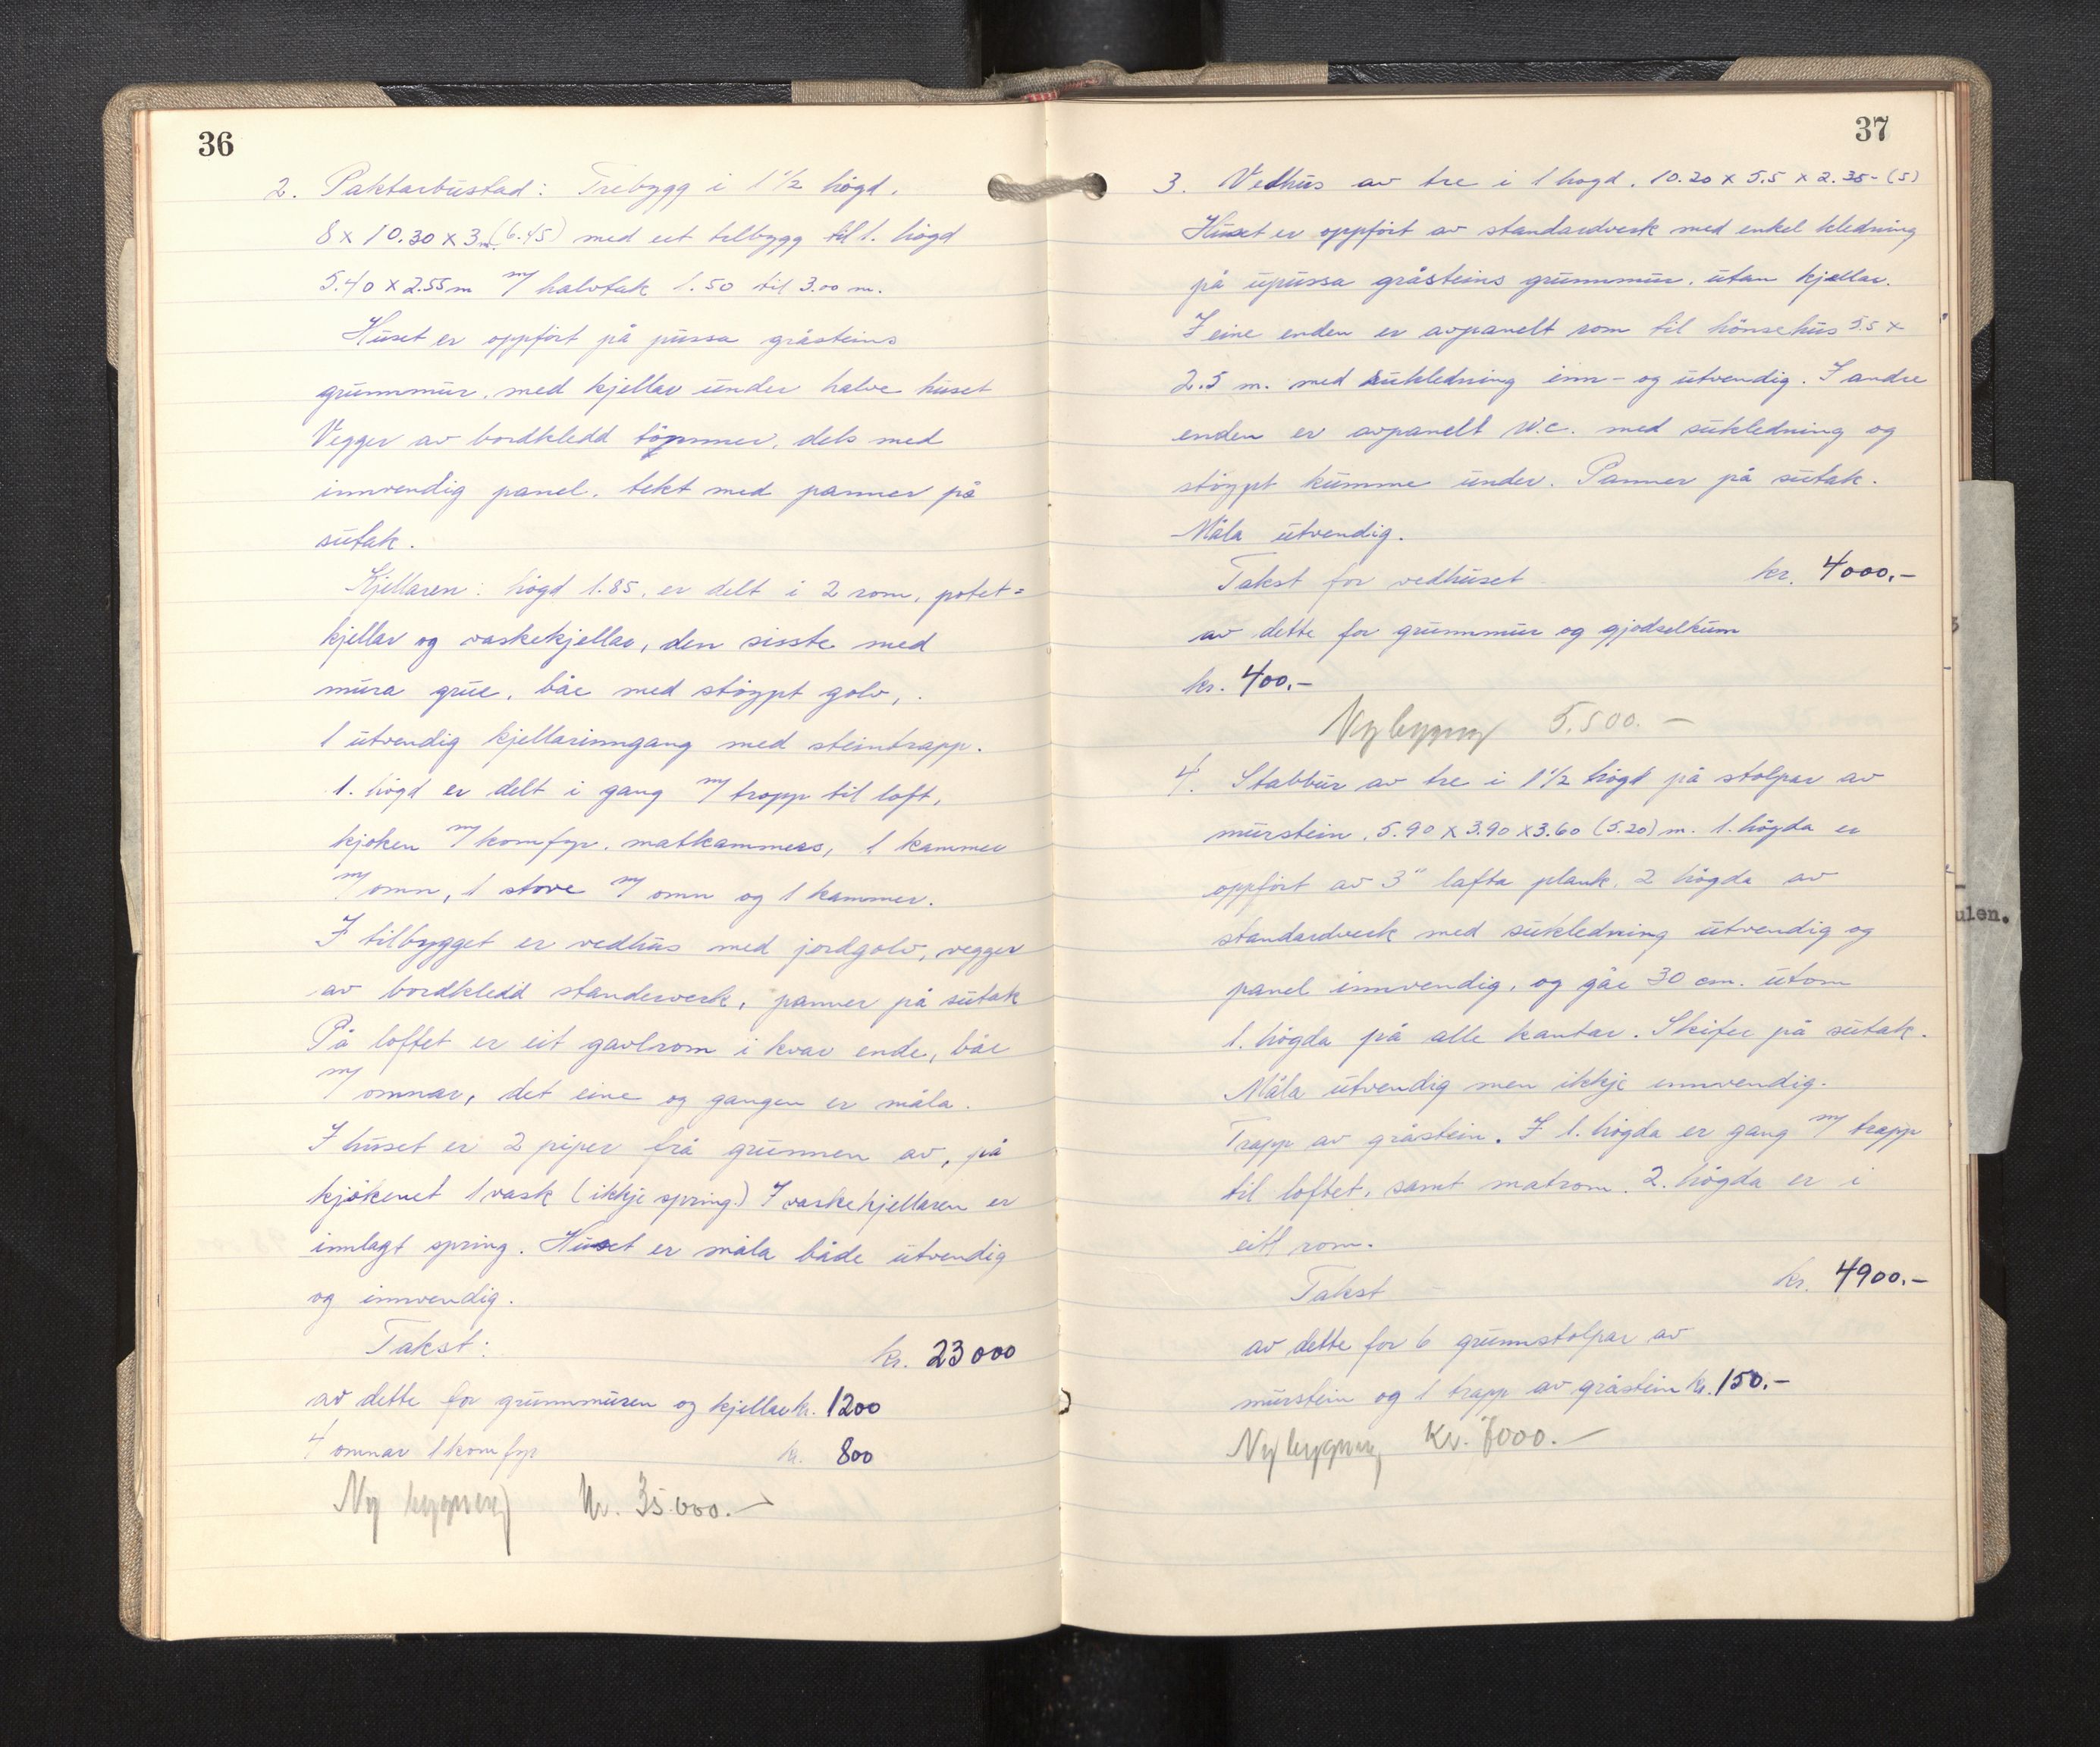 36
2. Paktarbustad: Trebygg i 1 1/2 högd.
8 x 10.30 x 3 m. (6.45) med eit tilbygg til 1. högd
5.40 x 2.55 m m/ halvtak 1.50 til 3.00 m.
Huset er oppfört på pussa gråsteins
grunnmur, med kjellar under halve huset
Vegger av bordkledd tömmer, dels med
innvendig panel, tekt med panner på
sutak.
Kjellaren: högd 1.85, er delt i 2 rom, potet=
kjellar og vaskekjellar, den sisste med
mura grue, båe med stöypt golv,.
1 utvendig kjellarinngang med steintrapp.
1. högd er delt i gang m/ tropp til loft,
kjöken m/ komfyr, matkammers, 1 kammer
m/ omn, 1 stove m/ omn og 1 kammer.
I tilbygget er vedhus med jordgolv, vegger
av bordkledd standerverk, panner på sutak
På loftet er eit gavlrom i kvar ende, båe
m/ omnar, det eine og gangen er måla.
I huset er 2 piper frå grunnen av, på
kjökenet 1 vask (ikkje spring.) I vaskekjellaren er
innlagt spring. Huset er måla både utvendig
og innvendig.
Takst: kr. 23000
av dette for grunnmuren og kjellar kr. 1200
4 omnar 1 komfyr kr. 800
Ny bygning Kr. 35.000.—
37
3. Vedhus av tre i 1 högd. 10.20 x 5.5 x 2.35 - (5)
Huset er oppfört av standardverk med enkel kledning
på upussa gråsteins grunnmur, utan kjellar.
I eine enden er avpanelt rom til hönsehus 5.5 x
2.5 m. med sukledning inn- og utvendig. I andre
enden er avpanelt W.c. med sukledning og
stöypt kumme under. Panner på sutak.
Måla utvendig.
Takst for vedhuset kr. 4000.-
av dette for grunnmur og gjodselkum
kr. 400.-
Nybygning 5.500.—
4. Stabbur av tre i 1 1/2 högd på stolpar av
murstein. 5.90 x 3.90 x 3.60 (5.20) m. 1. högda er
oppfört av 3" lafta plank, 2 högda av
standardverk med sukledning utvendig og
panel innvendig, og går 30 cm. utom
1. högda på alle kantar. Skifer på sutak.
Måla utvendig men ikkje innvendig.
Trapp av gråstein. I 1. högda er gang m/ trapp
til loftet, samt matrom. 2. högda er i
eitt rom.
Takst - kr. 4900.-
av dette for 6 grunnstolpar av
murstein og 1 trapp av gråstein kr. 150.-
Nybygning Kr.
ulen.